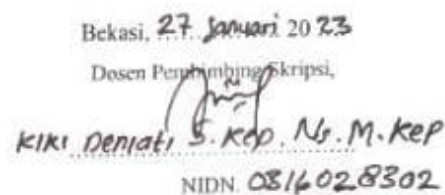 Bekasi, 27 Januari 2023
Dosen Pembimbing Skripsi,
Kiki Deniati S. Kep. Ns. M. Kep
NIDN. 0316028302